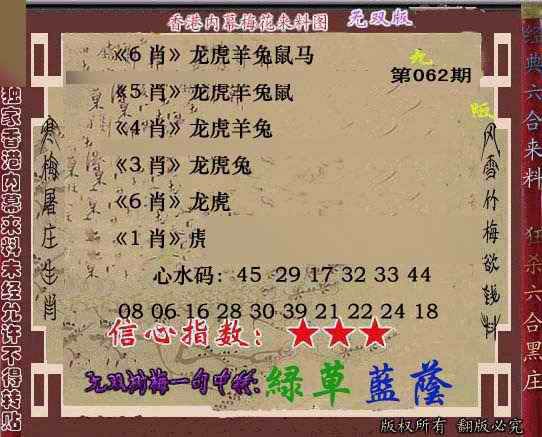 香港内幕梅花来料图 无双版
《6 肖》龙虎羊兔鼠马
九
第062期
《5 肖》龙虎羊兔鼠
版
《4 肖》龙虎羊兔
《3 肖》龙虎兔
《6 肖》龙虎
《1 肖》虎
心水码：45 29 17 32 33 44
08 06 16 28 30 39 21 22 24 18
信心指数：★★★
无双测梅一句中特:绿草蓝荫
版权所有 翻版必究
独家香港内幕来料未经允许不得转贴
寒梅屠庄生肖
风雪竹梅欲钱料
经典六合来料 狂杀六合黑庄